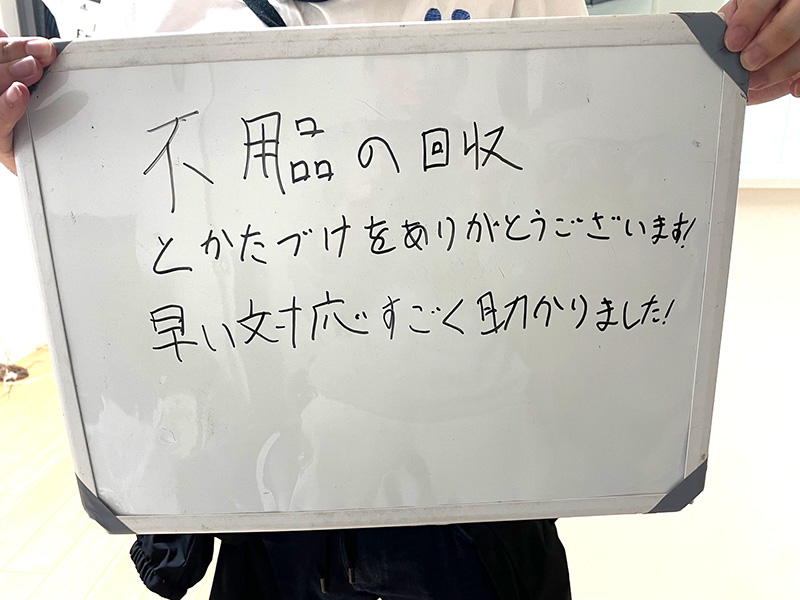 不用品の回収
とかたづけをありがとうございます!
早い対応すごく助かりました!